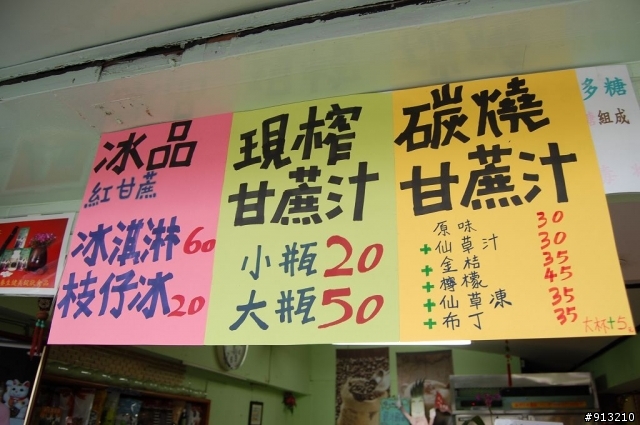 冰品
紅甘蔗
冰淇淋60
枝仔冰20
現榨
甘蔗汁
小瓶20
大瓶50
碳燒
甘蔗汁
原味 30
+仙草汁 30
+金桔 35
+檸檬 45
+仙草凍 35
+布丁 35
大杯+5
多糖
組成
#913210